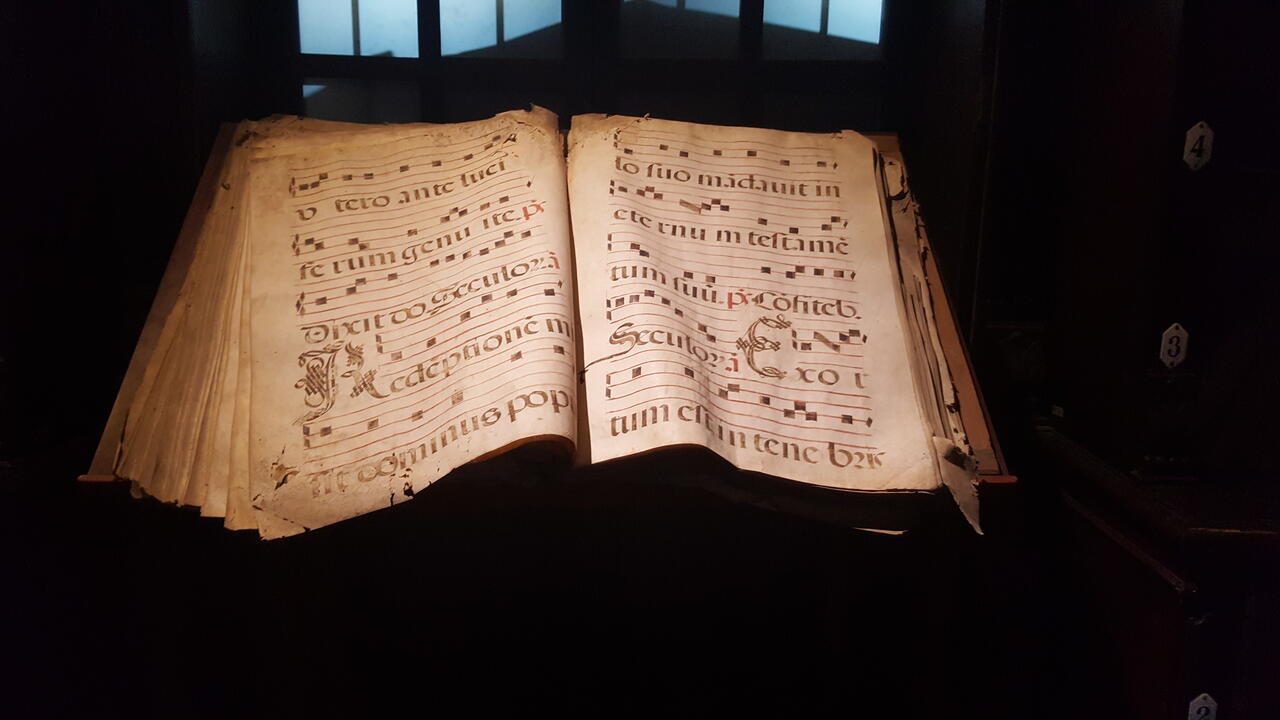 v tero ante luci
fe rum genu ite. ps̄
Dixit do. Seculorū. ā
Redēptionē m
sit dominus pop
lo suo mādavit in
ete rnu m testamē
tum suū. ps̄. Cōfiteb.
Seculorū. ā Exo r
tum est in tene bris
4
3
2